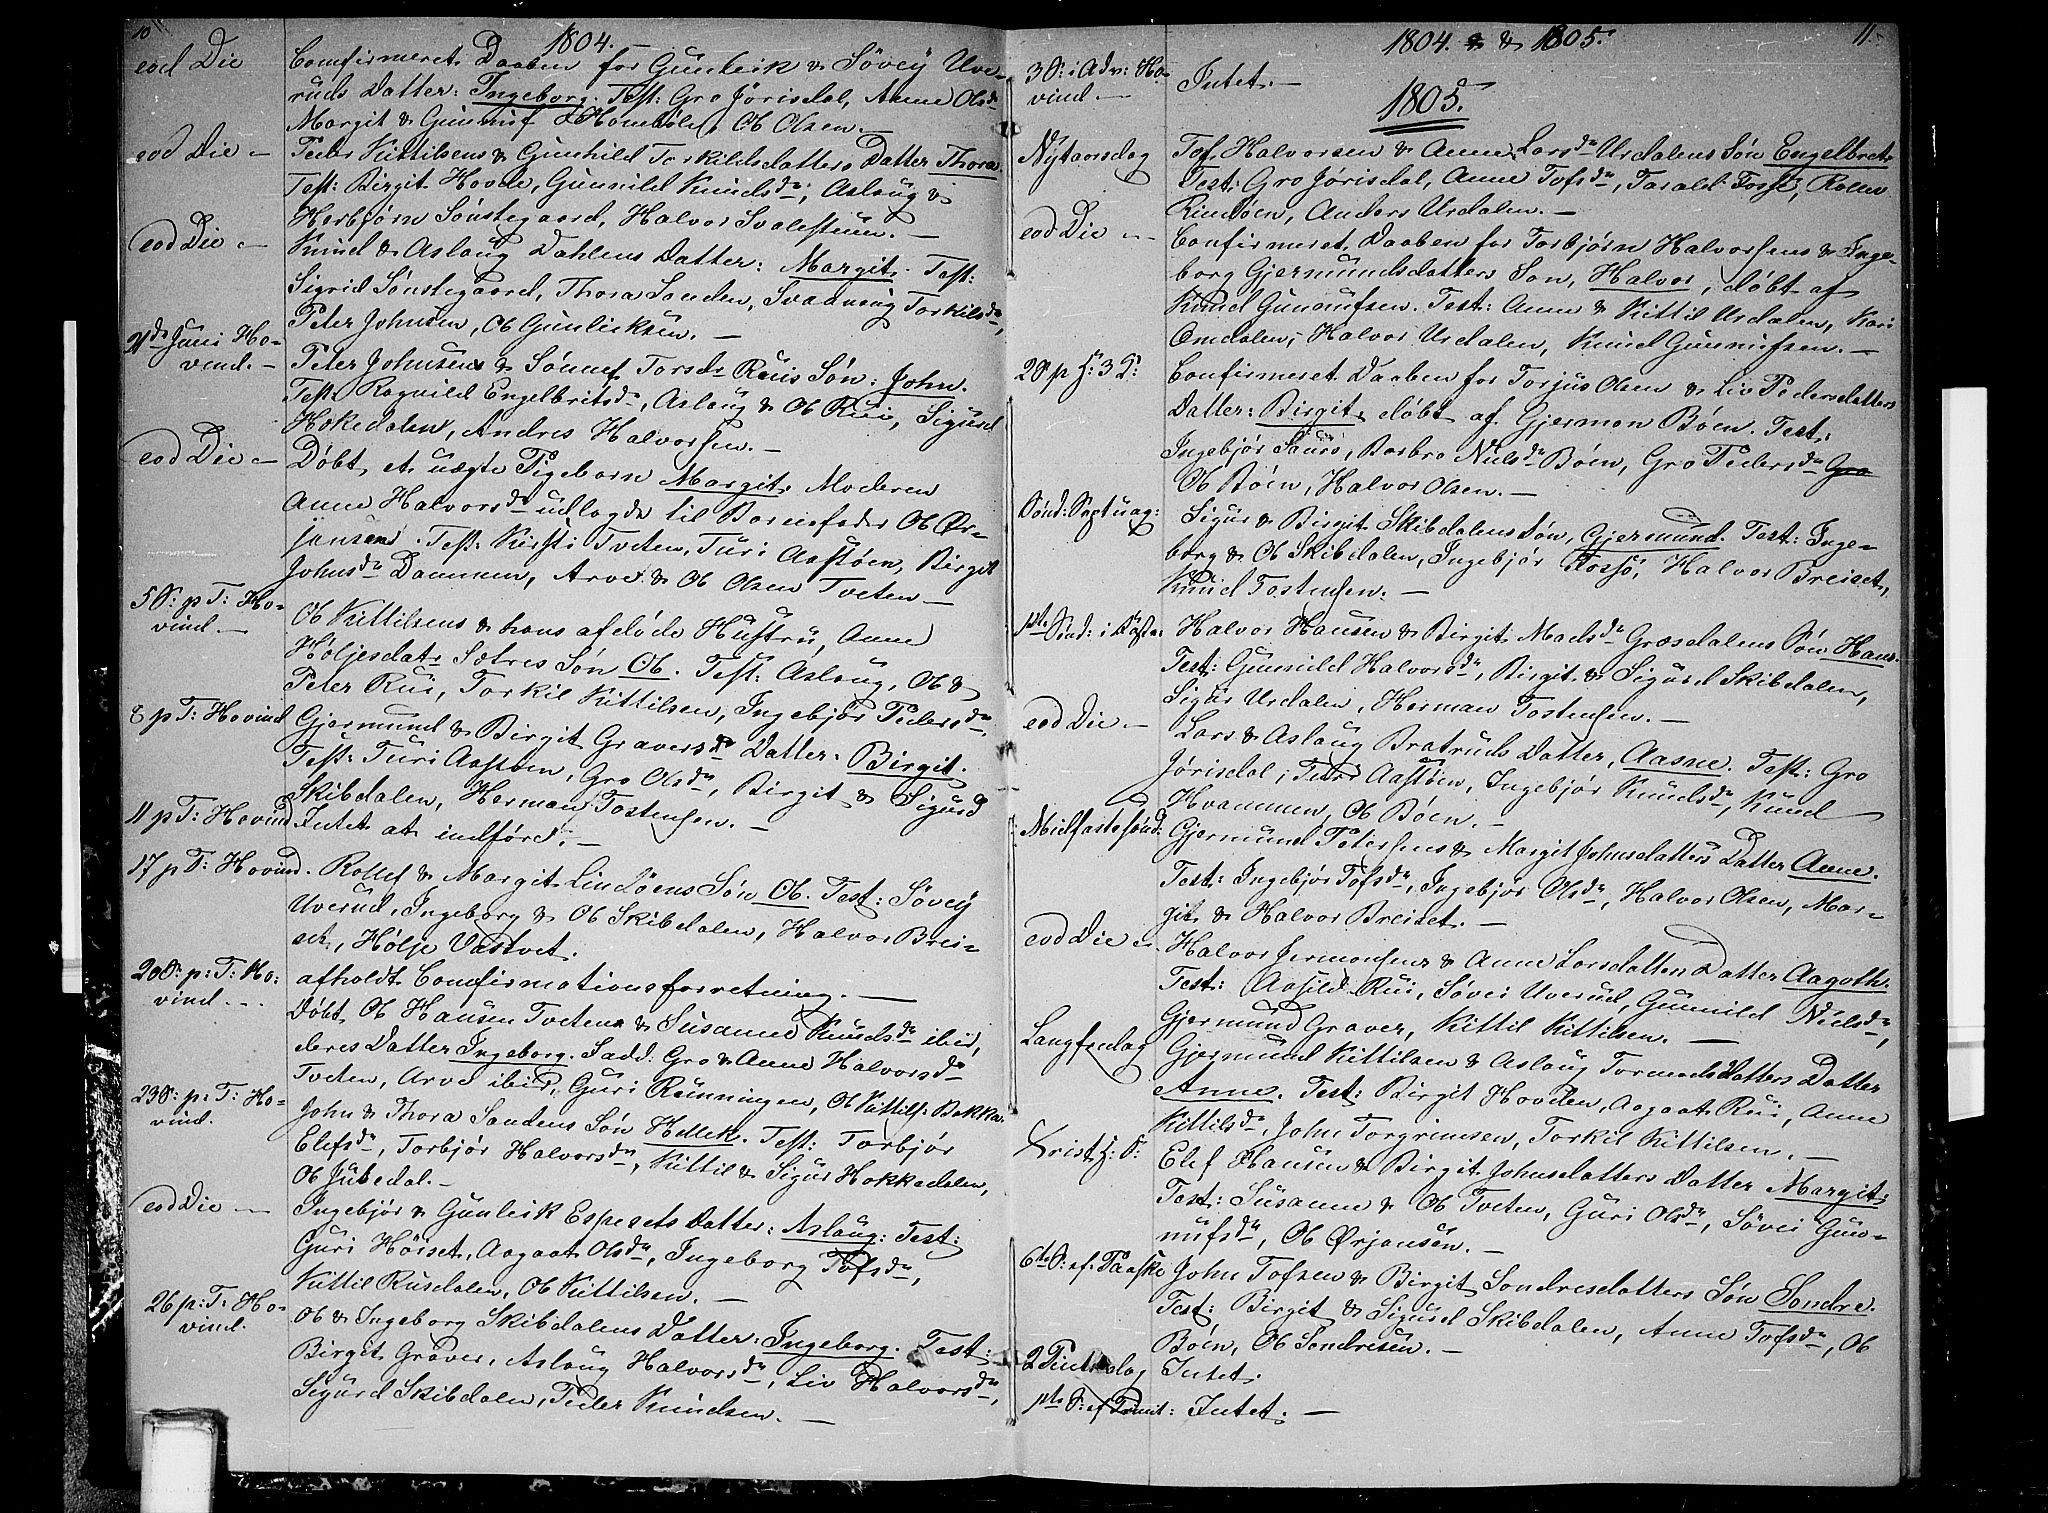 10
1804.
eod Die
Comfirmeret Daaben for Gunleik & Søvey Uve-
ruds Datter: Ingeborg. Test: Gro Jørisdal, Anne Olsdr
Margit & Gunnuf Ob Olsen. —
eod Die —
Peder Kittilsens & Gunhild Torkildsdatters Datter Thora.
Test: Birgit Hovde, Gunnild Knudsdr, Aslaug &
Herbjørn Sønstegaard, Halvor Svalestuen. —
eod Die —
Knud & Aslaug Dahlens Datter: Margit. Test:
Sigrid Sønstegaard, Thora Sanden, Svaanaug Torkilsdr,
Peter Johnsen, Ob Gunlicksen. —
21de Juni Ho-
vind. —
Peter Johnsens & Sønnef Torsdr Ruis Søn: John.
Test: Ragnild Engelbritsdr, Aslaug & Ob Rui, Sigurd
Hokedalen, Andres Halvorsen. —
eod Die —
Døbt et uægte Pigebarn Margit. Moderen
Anne Halvorsdr udlagde til Barnefader Ob Ør-
jansen. Test: Kirsti Tveten, Turi Aastøen, Birgit
Johnsdr Dammen, Arve & Ob Olsen Tveten —
5 S: p T: Ho-
vind. —
Ob Kittilsens & hans afdøde Hustru, Anne
Høljesdat. Sætres Søn Ob. Test: Aslaug, Ob &
Peter Rui, Torkil Kittilsen, Ingebjør Pedersdr,
8 p T: Hovind
Gjermund & Birgit Gravers Datter: Birgit.
Test: Turi Aastøen, Gro Olsdr, Birgit & Sigurd
Skibdalen, Herman Tostensen. —
11 p T: Hovind
Intet at indføre. —
17 p T: Hovind.
Rollef & Margit Lindøens Søn Ob. Test: Søvey
Uverud, Ingeborg & Ob Skibdalen, Halvor Brei-
set, Hølje Vastvet.
20 S: p: T: Ho:
vind. —
afholdt Comfirmationsforretning. —
Døbt Ob Hansen Tvetens & Susanne Knudsdr ibid,
deres Datter Ingeborg. Fadd: Gro & Anne Halvorsdr
Tveten, Arve ibid, Guri Rünningen, Ob Kittils: Bakka.
23 S: p: T: Ho-
vind.
John & Thora Sandens Søn Hellek. Test: Torbjør
Elefsdr, Torbjør Halvorsdr, Kittil & Sigur Hokkedalen,
Ob Jubedal. —
eod Die —
Ingebjør & Gunleik Espesets Datter: Aslaug: Test:
Guri Høiset, Aagaat Olsdr, Ingeborg Tofsdr,
Kittil Rusdalen, Ob Kittilsen. —
26 p: T: Ho-
vind.
Ob & Ingeborg Skibdalens Datter: Ingeborg. Test:
Birgit Graver, Aslaug Halvorsdr, Liv Halvorsdr,
Sigurd Skibdalen, Peder Knudsen. —
11.
1804 & 1805.
3 S: i Adv: Ho-
vind. —
Intet. —
1805.
Nytaarsdag
Tof Halvorsen & Anne Larsdr Urdalens Søn Engelbret.
Test: Gro Jørisdal, Anne Tofsdr, Tarald Fosse, Rollen
Rindøen, Anders Urdalen. —
eod Die —
Comfirmeret Daaben for Torbjørn Halvorsens & Inge-
borg Gjermundsdatters Søn, Halvor, døbt af
Knud Gunnufsen. Test: Anne & Kittil Urdalen, Kari
Omdalen, Halvor Urdalen, Knud Gunnufsen. —
Comfirmeret Daaben for Torjus Olsen & Liv Pedersdatters
Datter: Birgit, døbt af Gjermon Bøen. Test:
Ingebjør Barbro Nielsdr Bøen, Gro Pedersdr Gro
Ob Bøen, Halvor Olsen. —
Sønd: Septuag:
Sigur & Birgit Skibdalens Søn, Gjermund. Test: Inge-
borg & Ob Skibdalen, Ingebjør Fossø, Halvor Breiset,
Knud Tostensen. —
1ste Sønd: i Faste:
Halvor Hansen & Birgit Madsdr Græsdalens Søn Hans.
Test: Gunnild Halvorsdr, Birgit & Sigurd Skibdalen,
Sigur Urdalen, Herman Tostensen. —
eod Die —
Lars & Aslaug Bratruds Datter, Aasne. Test: Gro
Jørisdal, Turi Aastøen, Ingebjør Knudsdr, Knud
Hvammen, Ob Bøen. —
Midfastesønd:
Gjermund Petersens & Margit Johnsdatters Datter Anne.
Test: Ingebjør Tofsdr, Ingebjør Olsdr, Halvor Olsen, Mar-
git & Halvor Breiset. —
eod Die —
Halvor Jermonsens & Anne Larsdatters Datter Aagoth.
Test: Aasild Rui, Søvei Uverud, Gunnild Nielsdr,
Gjermund Graver, Kittil Kittilsen. —
Langfredag
Gjermund Kittilsen & Aslaug Tormodsdatters Datter
Anne. Test: Birgit Hovden, Aagaat Rui, Anne
Kittilsdr, John Torgrimsen, Torkil Kittilsen. —
Elef Hansen & Birgit Johnsdatters Datter Margit.
Test: Susanne & Ob Tveten, Guri Olsdr, Søvei Gun-
nufsdr, Ob Ørjansen. —
6te S: ef. Paaske
John Tofsen & Birgit Sondresdatters Søn Sondre.
Test: Birgit & Sigurd Skibdalen, Anne Tofsdr, Ob
Bøen, Ob Sondresen. —
2 Pintsedag
Intet.
1ste S: ef Trinit:
Intet. —